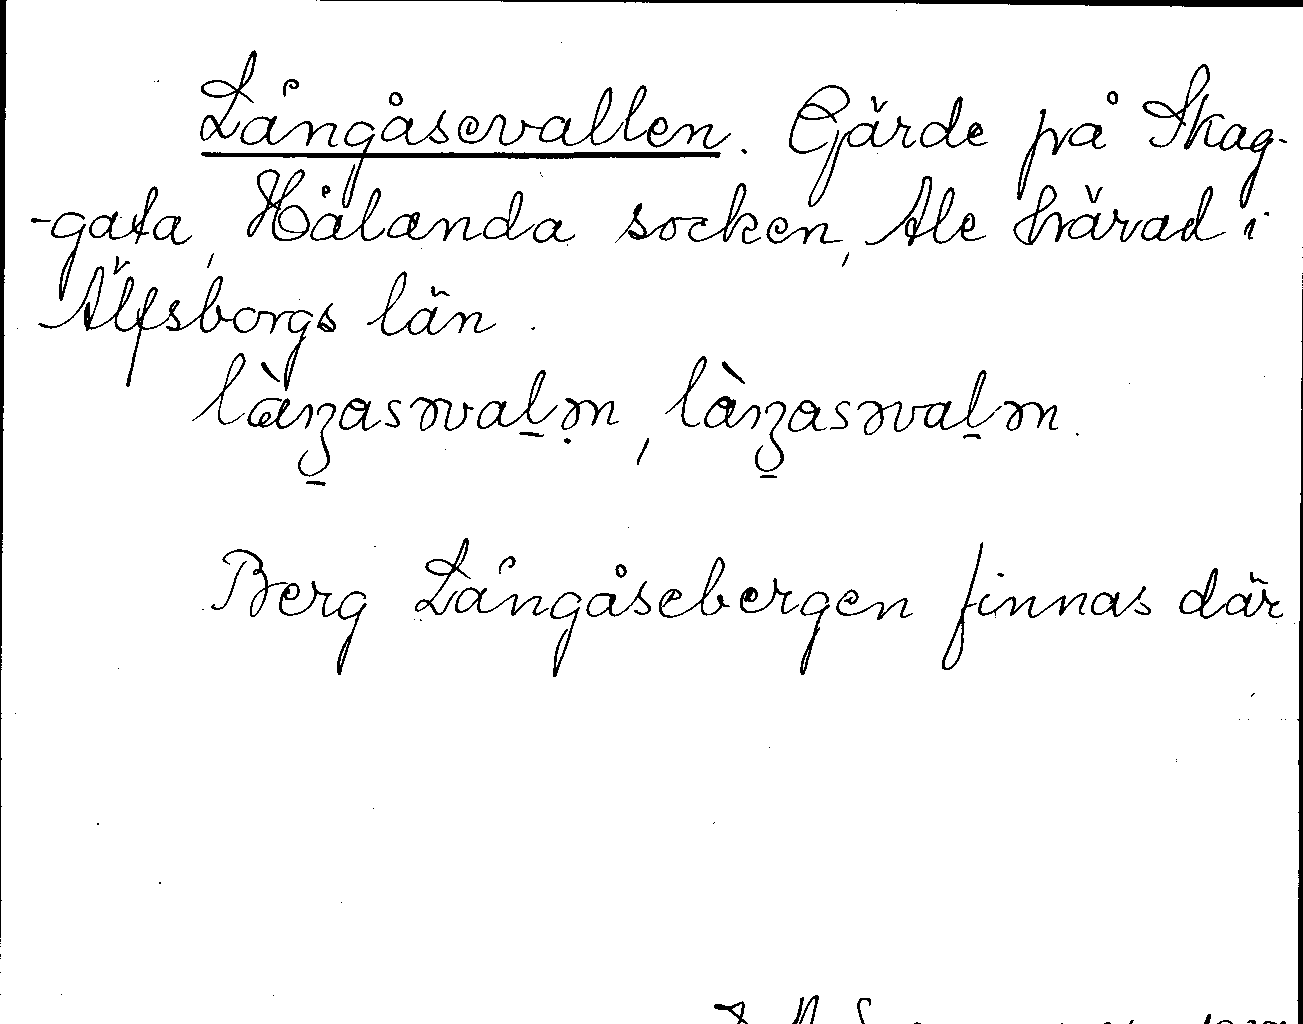 Långåsevallen. Gärde på Skag-
-gata, Hålanda socken, Ale härad i
Älfsborgs län.
là̀ŋasəvaḻəṇ, làŋasəvaḻən.
Berg Långåsebergen finnas där